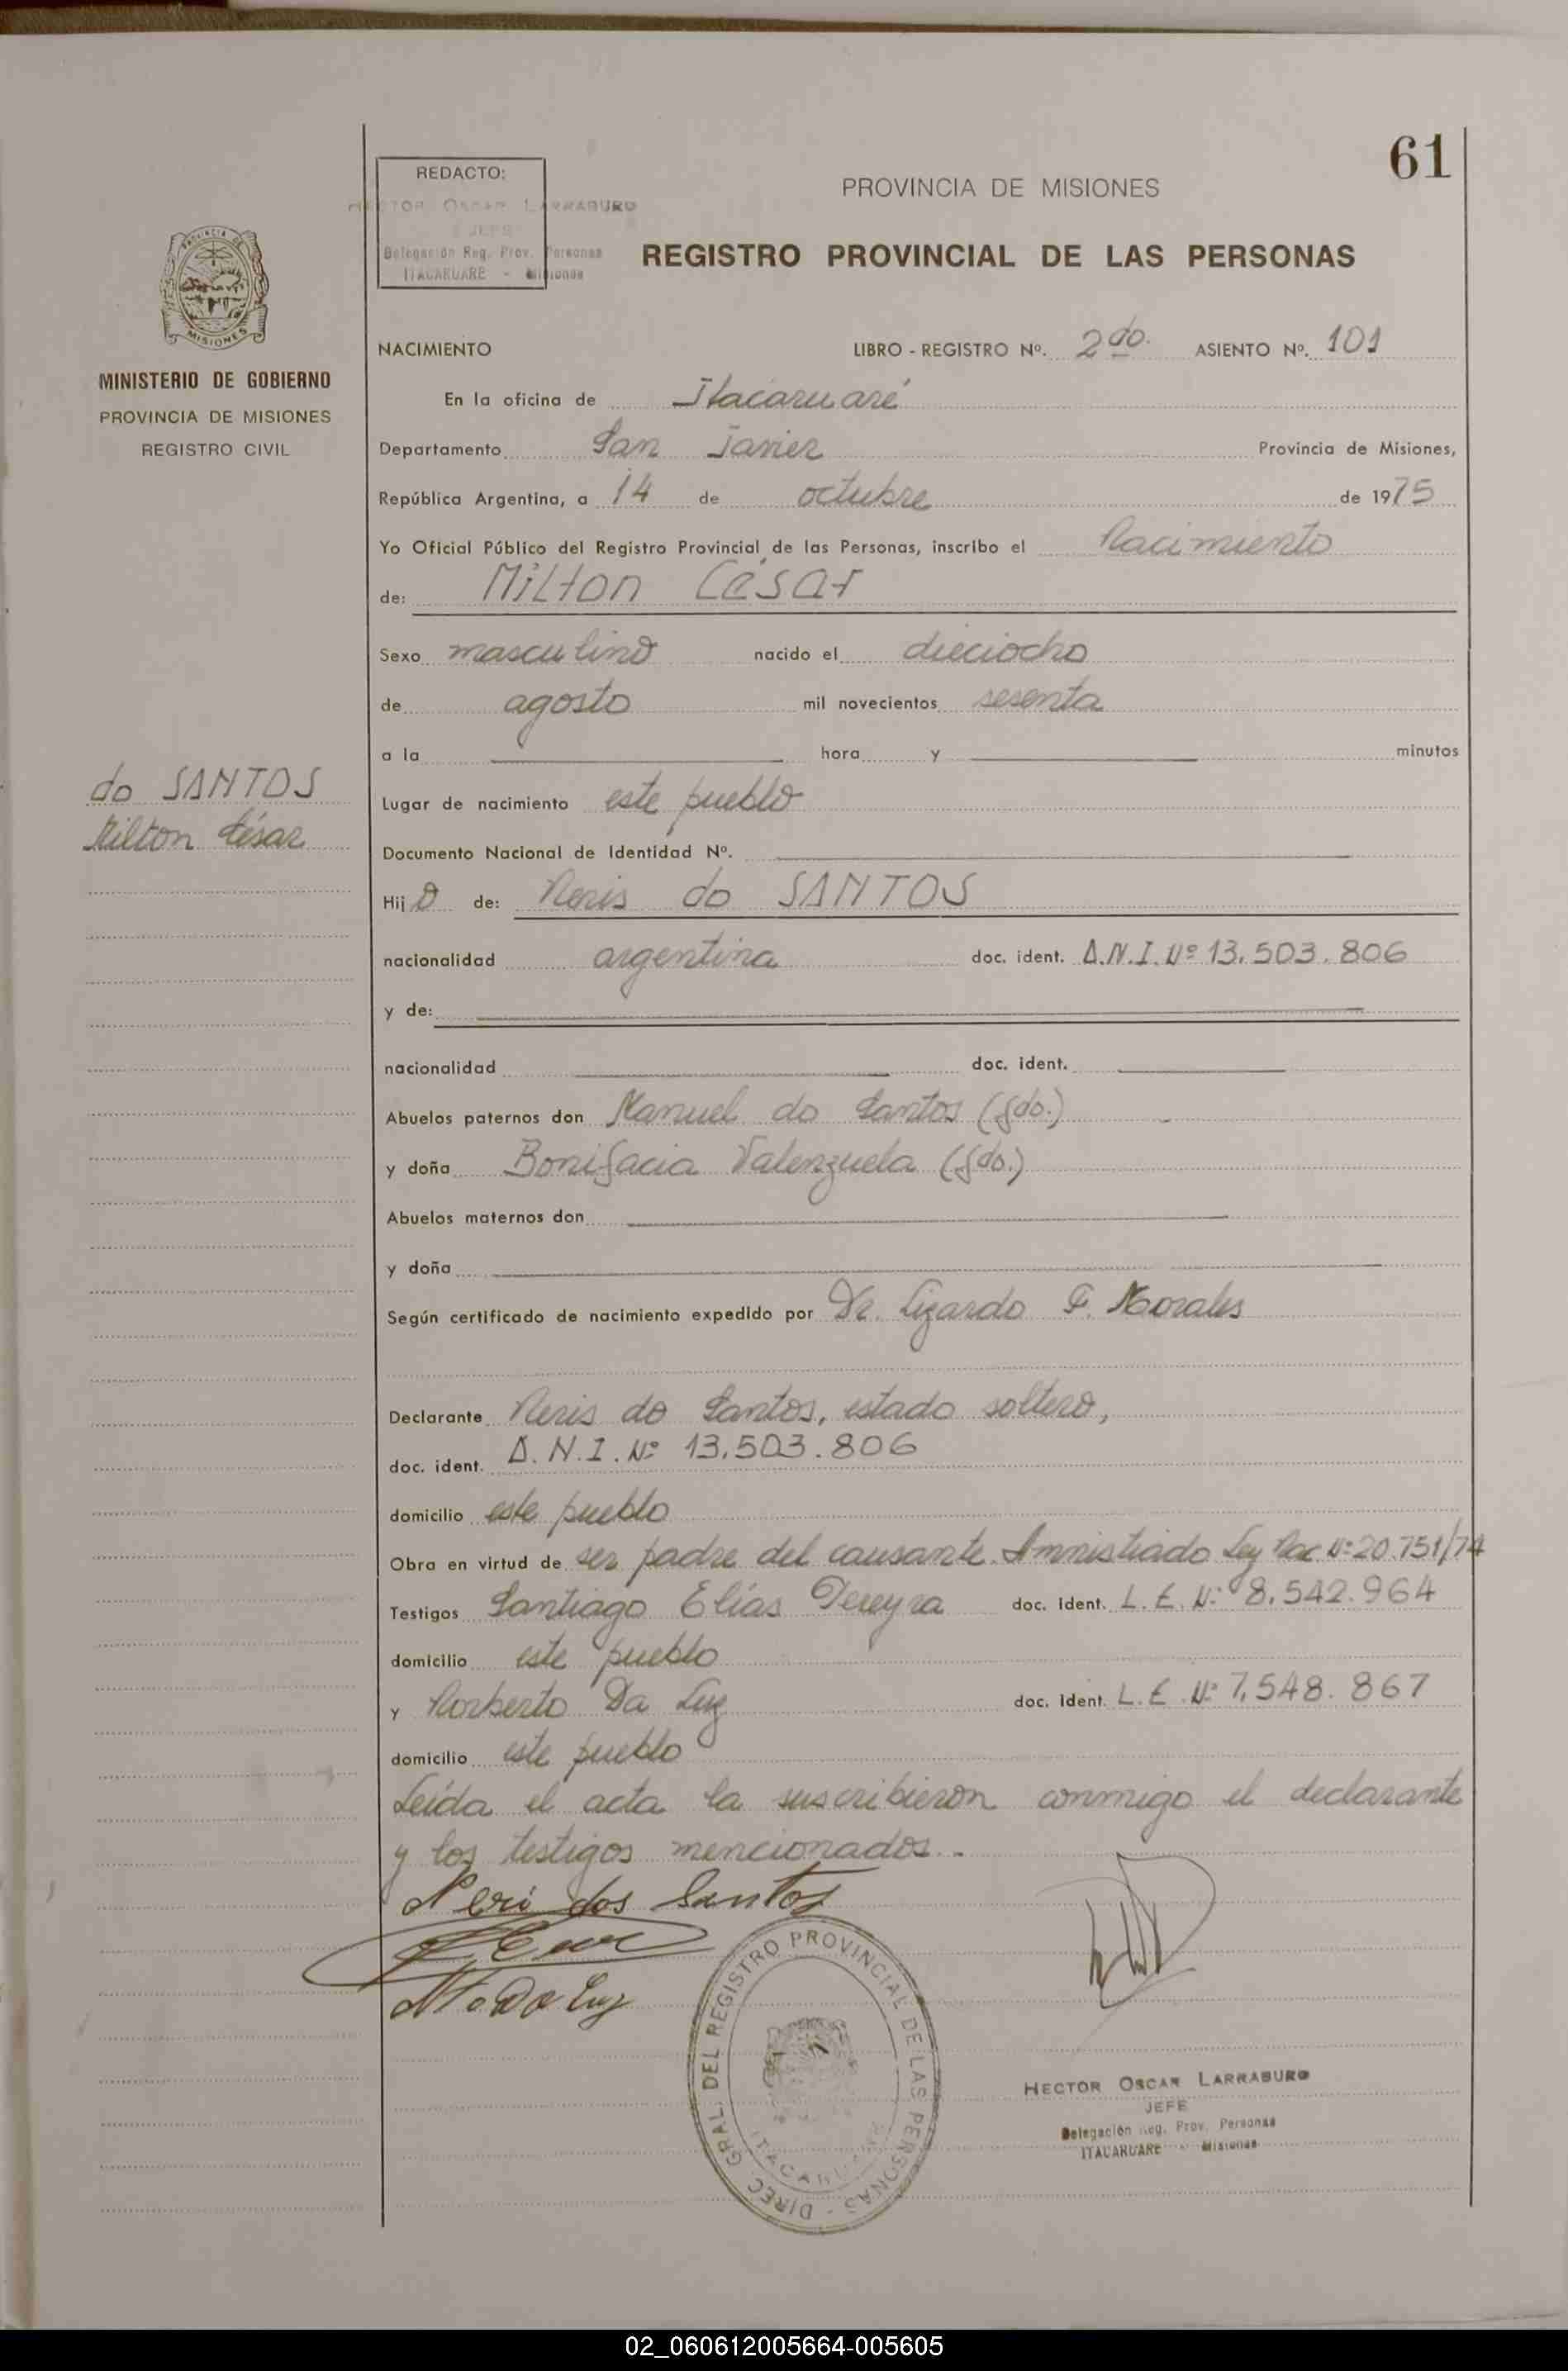 61
REDACTO:
HECTOR OSCAR LARRABURO
JEFE
Delegación Reg. Prov. Personas
ITACARUARE - Misiones
PROVINCIA DE MISIONES
REGISTRO PROVINCIAL DE LAS PERSONAS
PROVINCIA DE
MISIONES
MINISTERIO DE GOBIERNO
PROVINCIA DE MISIONES
REGISTRO CIVIL
NACIMIENTO LIBRO - REGISTRO Nº. 2do. ASIENTO Nº. 101
En la oficina de Itacaruaré
Departamento San Javier Provincia de Misiones,
República Argentina, a 14 de octubre de 1975
Yo Oficial Público del Registro Provincial de las Personas, inscribo el Nacimiento
de: Milton César
Sexo masculino nacido el dieciocho
de agosto mil novecientos sesenta
a la hora y minutos
do SANTOS
Milton César
Lugar de nacimiento este pueblo
Documento Nacional de Identidad Nº.
Hijo de: Neris do SANTOS
nacionalidad argentina doc. ident. D.N.I. Nº 13.503.806
y de:
nacionalidad doc. ident.
Abuelos paternos don Manuel do Santos (fdo.)
y doña Bonifacia Valenzuela (fdo.)
Abuelos maternos don
y doña
Según certificado de nacimiento expedido por Dr. Lizardo F. Morales
Declarante Neris do Santos, estado soltero,
doc. ident. D.N.I. Nº 13.503.806
domicilio este pueblo
Obra en virtud de ser padre del causante. Amnistiado Ley Nac Nº 20.751/74
Testigos Santiago Elías Pereyra doc. ident. L.E. Nº 8.542.964
domicilio este pueblo
y Norberto Da Luz doc. ident. L.E. Nº 7.548.867
domicilio este pueblo
Leída el acta la suscribieron conmigo el declarante
y los testigos mencionados.-
Neri dos Santos
Nto Da Luz
DIREC. GRAL. DEL REGISTRO PROVINCIAL DE LAS PERSONAS -
ITACARUARE
HECTOR OSCAR LARRABURO
JEFE
Delegación Reg. Prov. Personas
ITACARUARE - Misiones
02_060612005664-005605